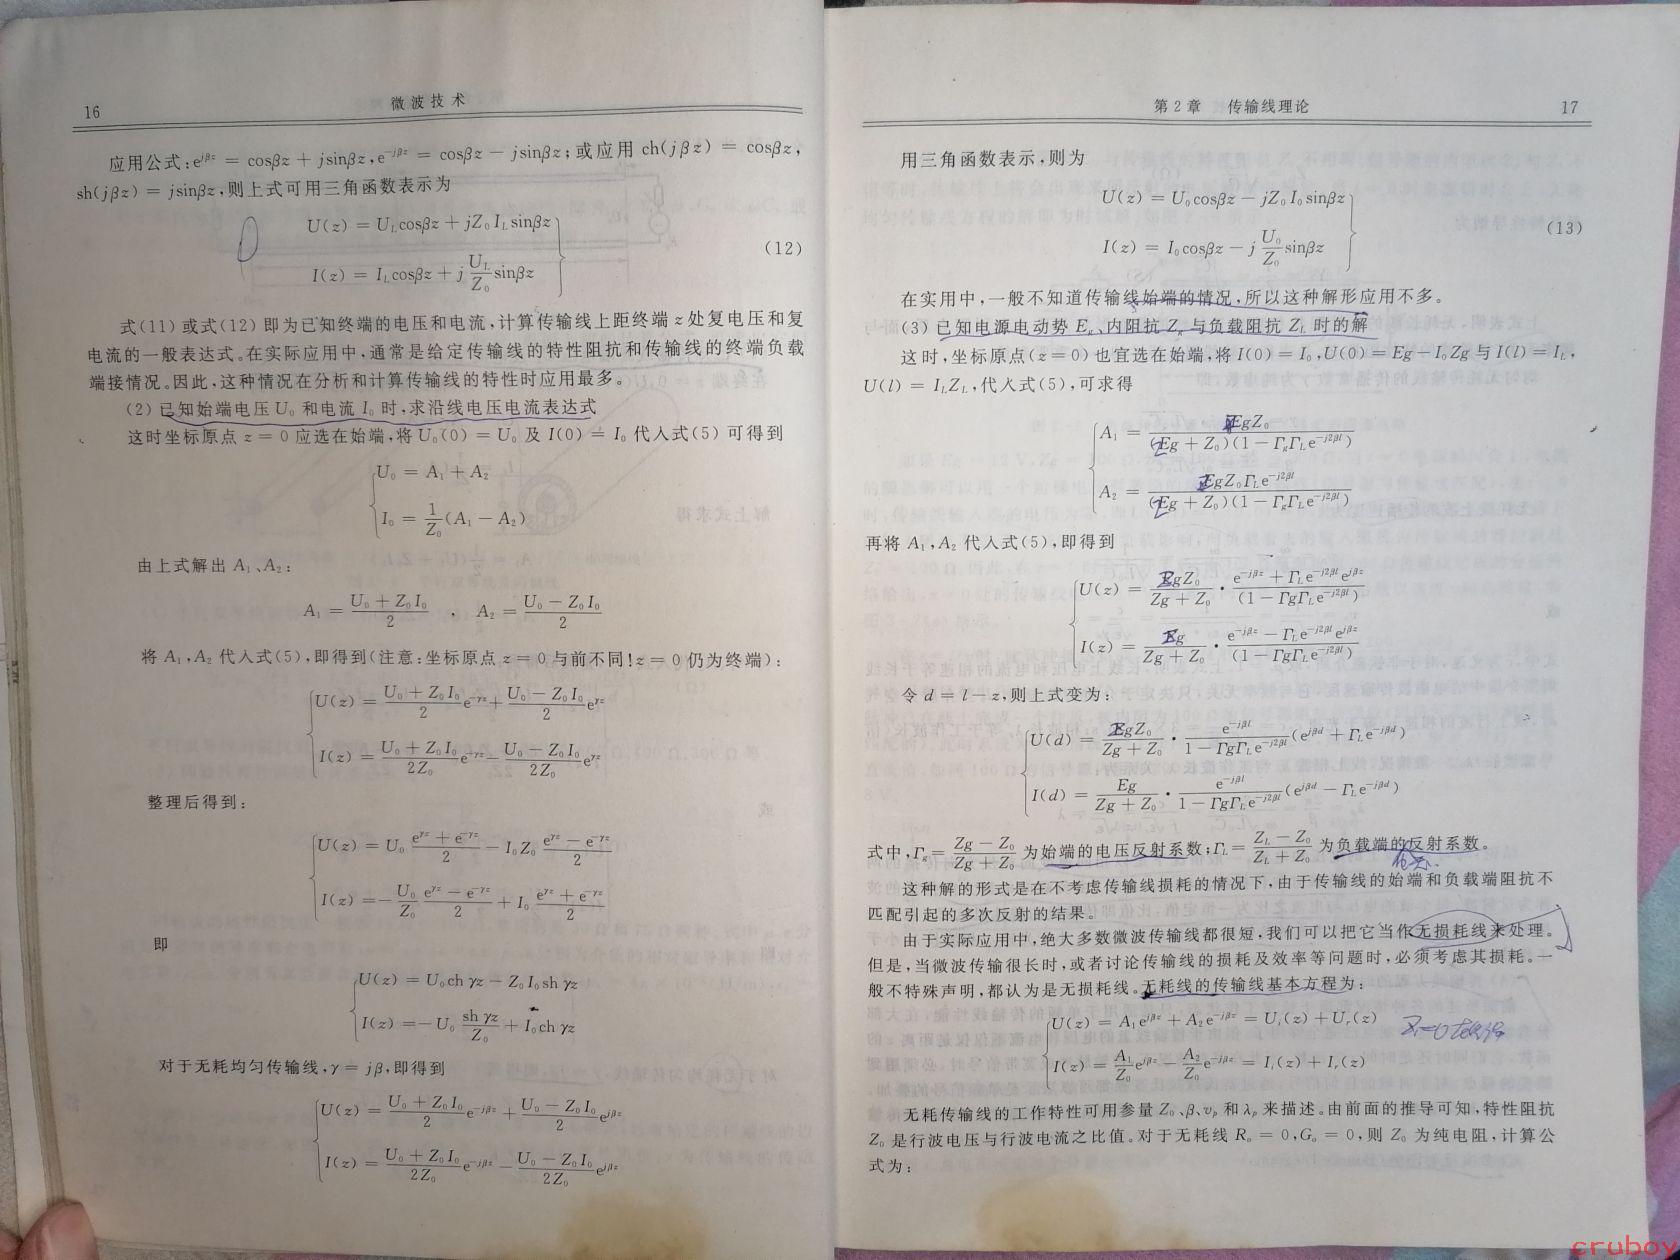 16
微波技术
应用公式:e^{jβz} = cosβz + jsinβz, e^{-jβz} = cosβz − jsinβz;或应用 ch(jβz) = cosβz,
sh(jβz) = jsinβz,则上式可用三角函数表示为
U(z) = U_L cosβz + jZ₀I_L sinβz
(12)
I(z) = I_L cosβz + j U_L/Z₀ sinβz
式(11)或式(12)即为已知终端的电压和电流,计算传输线上距终端 z 处复电压和复
电流的一般表达式。在实际应用中,通常是给定传输线的特性阻抗和传输线的终端负载
端接情况。因此,这种情况在分析和计算传输线的特性时应用最多。
(2) 已知始端电压 U₀ 和电流 I₀ 时,求沿线电压电流表达式
这时坐标原点 z = 0 应选在始端,将 U₀(0) = U₀ 及 I(0) = I₀ 代入式(5)可得到
U₀ = A₁ + A₂
I₀ = 1/Z₀ (A₁ − A₂)
由上式解出 A₁、A₂:
A₁ = (U₀ + Z₀I₀)/2 , A₂ = (U₀ − Z₀I₀)/2
将 A₁,A₂ 代入式(5),即得到(注意:坐标原点 z = 0 与前不同!z = 0 仍为终端):
U(z) = (U₀ + Z₀I₀)/2 e^{-γz} + (U₀ − Z₀I₀)/2 e^{γz}
I(z) = (U₀ + Z₀I₀)/2Z₀ e^{-γz} − (U₀ − Z₀I₀)/2Z₀ e^{γz}
整理后得到:
U(z) = U₀ (e^{γz} + e^{-γz})/2 − I₀Z₀ (e^{γz} − e^{-γz})/2
I(z) = − U₀/Z₀ (e^{γz} − e^{-γz})/2 + I₀ (e^{γz} + e^{-γz})/2
即
U(z) = U₀ch γz − Z₀I₀sh γz
I(z) = − U₀ sh γz/Z₀ + I₀ch γz
对于无耗均匀传输线,γ = jβ,即得到
U(z) = (U₀ + Z₀I₀)/2 e^{-jβz} + (U₀ − Z₀I₀)/2 e^{jβz}
I(z) = (U₀ + Z₀I₀)/2Z₀ e^{-jβz} − (U₀ − Z₀I₀)/2Z₀ e^{jβz}
第 2 章 传输线理论
17
用三角函数表示,则为
U(z) = U₀cosβz − jZ₀I₀sinβz
(13)
I(z) = I₀cosβz − j U₀/Z₀ sinβz
在实用中,一般不知道传输线始端的情况,所以这种解形应用不多。
(3) 已知电源电动势 E_g、内阻抗 Z_g 与负载阻抗 Z_L 时的解
这时,坐标原点(z = 0)也宜选在始端,将 I(0) = I₀,U(0) = Eg − I₀Zg 与 I(l) = I_L,
U(l) = I_L Z_L,代入式(5),可求得
A₁ = EgZ₀/(Zg + Z₀)(1 − Γ_gΓ_L e^{-j2βl})
A₂ = EgZ₀Γ_L e^{-j2βl}/(Zg + Z₀)(1 − Γ_gΓ_L e^{-j2βl})
再将 A₁,A₂ 代入式(5),即得到
U(z) = EgZ₀/(Zg + Z₀) · (e^{-jβz} + Γ_L e^{-j2βl} e^{jβz})/(1 − ΓgΓ_L e^{-j2βl})
I(z) = Eg/(Zg + Z₀) · (e^{-jβz} − Γ_L e^{-j2βl} e^{jβz})/(1 − ΓgΓ_L e^{-j2βl})
令 d = l − z,则上式变为:
U(d) = EgZ₀/(Zg + Z₀) · e^{-jβl}/(1 − ΓgΓ_L e^{-j2βl}) (e^{jβd} + Γ_L e^{-jβd})
I(d) = Eg/(Zg + Z₀) · e^{-jβl}/(1 − ΓgΓ_L e^{-j2βl}) (e^{jβd} − Γ_L e^{-jβd})
式中,Γ_g = (Zg − Z₀)/(Zg + Z₀) 为始端的电压反射系数;Γ_L = (Z_L − Z₀)/(Z_L + Z₀) 为负载端的反射系数。
这种解的形式是在不考虑传输线损耗的情况下,由于传输线的始端和负载端阻抗不
匹配引起的多次反射的结果。
由于实际应用中,绝大多数微波传输线都很短,我们可以把它当作无损耗线来处理。
但是,当微波传输很长时,或者讨论传输线的损耗及效率等问题时,必须考虑其损耗。一
般不特殊声明,都认为是无损耗线。无耗线的传输线基本方程为:
U(z) = A₁e^{jβz} + A₂e^{-jβz} = U_i(z) + U_r(z)
I(z) = A₁/Z₀ e^{jβz} − A₂/Z₀ e^{-jβz} = I_i(z) + I_r(z)
无耗传输线的工作特性可用参量 Z₀、β、v_p 和 λ_p 来描述。由前面的推导可知,特性阻抗
Z₀ 是行波电压与行波电流之比值。对于无耗线 R₀ = 0,G₀ = 0,则 Z₀ 为纯电阻,计算公
式为:
cruboy